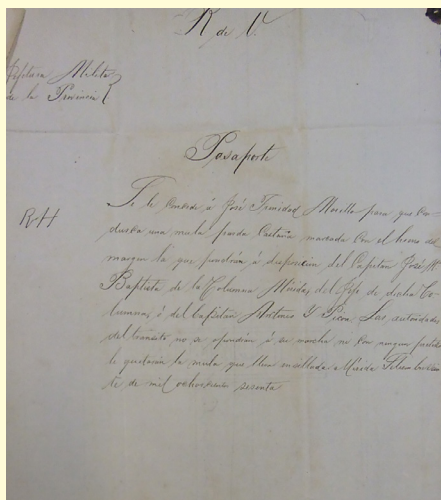 R de V.
Jefetura Militar
de la Provincia
Pasaporte
Se le concede á José Trinidad Morillo para que con
RH
dusca una mula parda castaña marcada con el hierro del
margen la que pondrá á disposicion del Capitan José M
Baptista de la Columna Mérida, del Jefe de dicha Co
lumna, ó del Capitan Antonio Y Picon. Las autoridades
del tránsito no se opondrán á su marcha ni con ningun
le quitarán la mula que lleva ensillada. Mérida Febrero
te de mil ochocientos sesenta